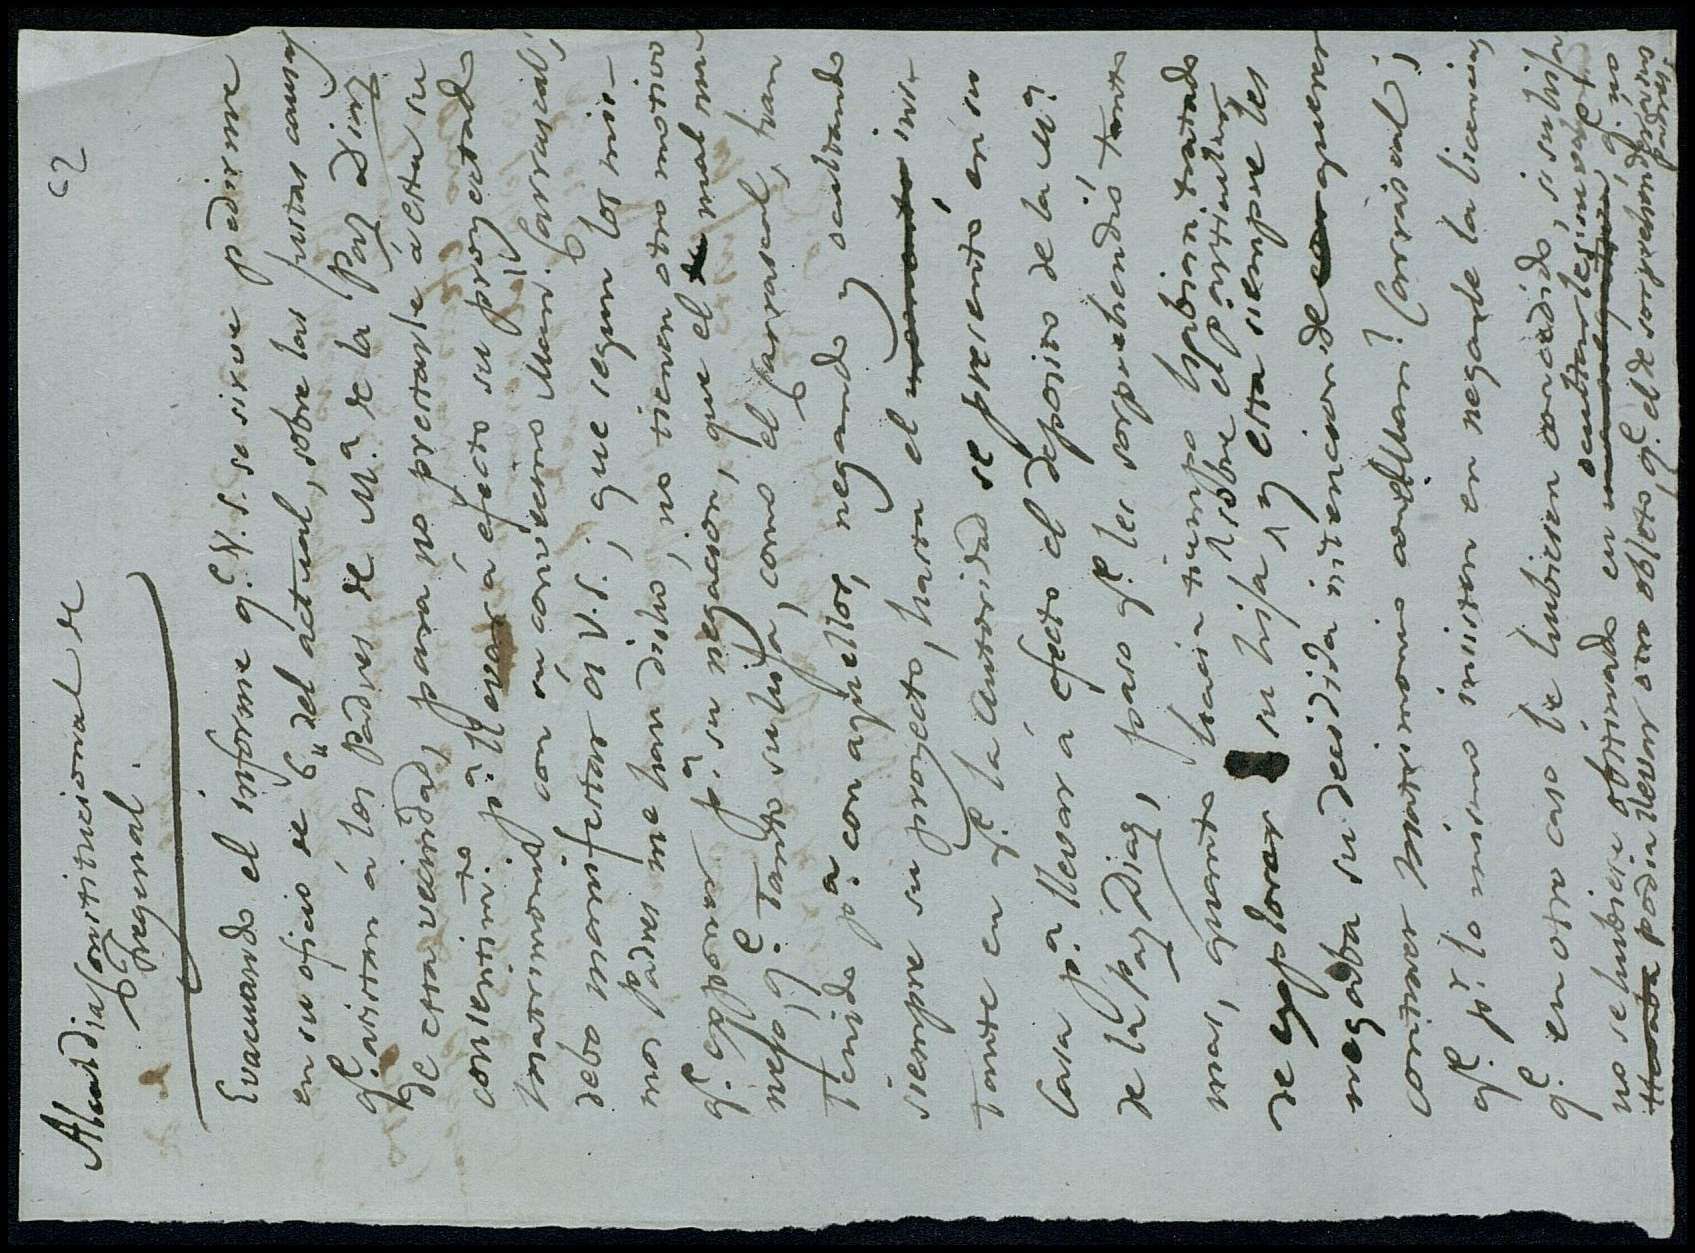 62
Alcaldia Constitucional de
Fregenal.
Evacuando el informe q.e V.S. se sirve pedirme
en su oficio de 6,, del actual, sobre las justas causas
q.e asistan á los padres de M.a de la Paz Diaz
de esta vecindad, para no prestarle á esta su
consentim.to p.a llevar á efecto su proyectado
matrimonio con su convecino Man.l Carrascal,
debo manifestar á V.S., que segun los mis-
mos padres me han dicho, no tienen otro motivo
q.e esponer p.a su negacion, que el mal ma-
nejo q.e tanto su hija, como el Carrascal, han
tenido p.a con aquellos, negando y ocultando
siempre su proyecto, hasta el momento ins-
tante en q.e la Autoridad se presentó en su
casa p.a llevar á efecto el deposito de la M.a
de la Paz Diaz, paso q.e les sorprehendió tanto
mas, quanto hacia tiempo habian tratado
de esplorar á su hija sobre el particular, y esta siempre les
negaba su decidida intencion de
contraer matrimonio con el Man.l Carrascal;
q.e p.r lo mismo insisten en negarle la licencia,
q.e en otro caso le hubiesen concedido, si su hija
no se hubiese obstinado en ocultarles q.e no
podia llevar otro objeto, q.e el de sorprehender
padres.